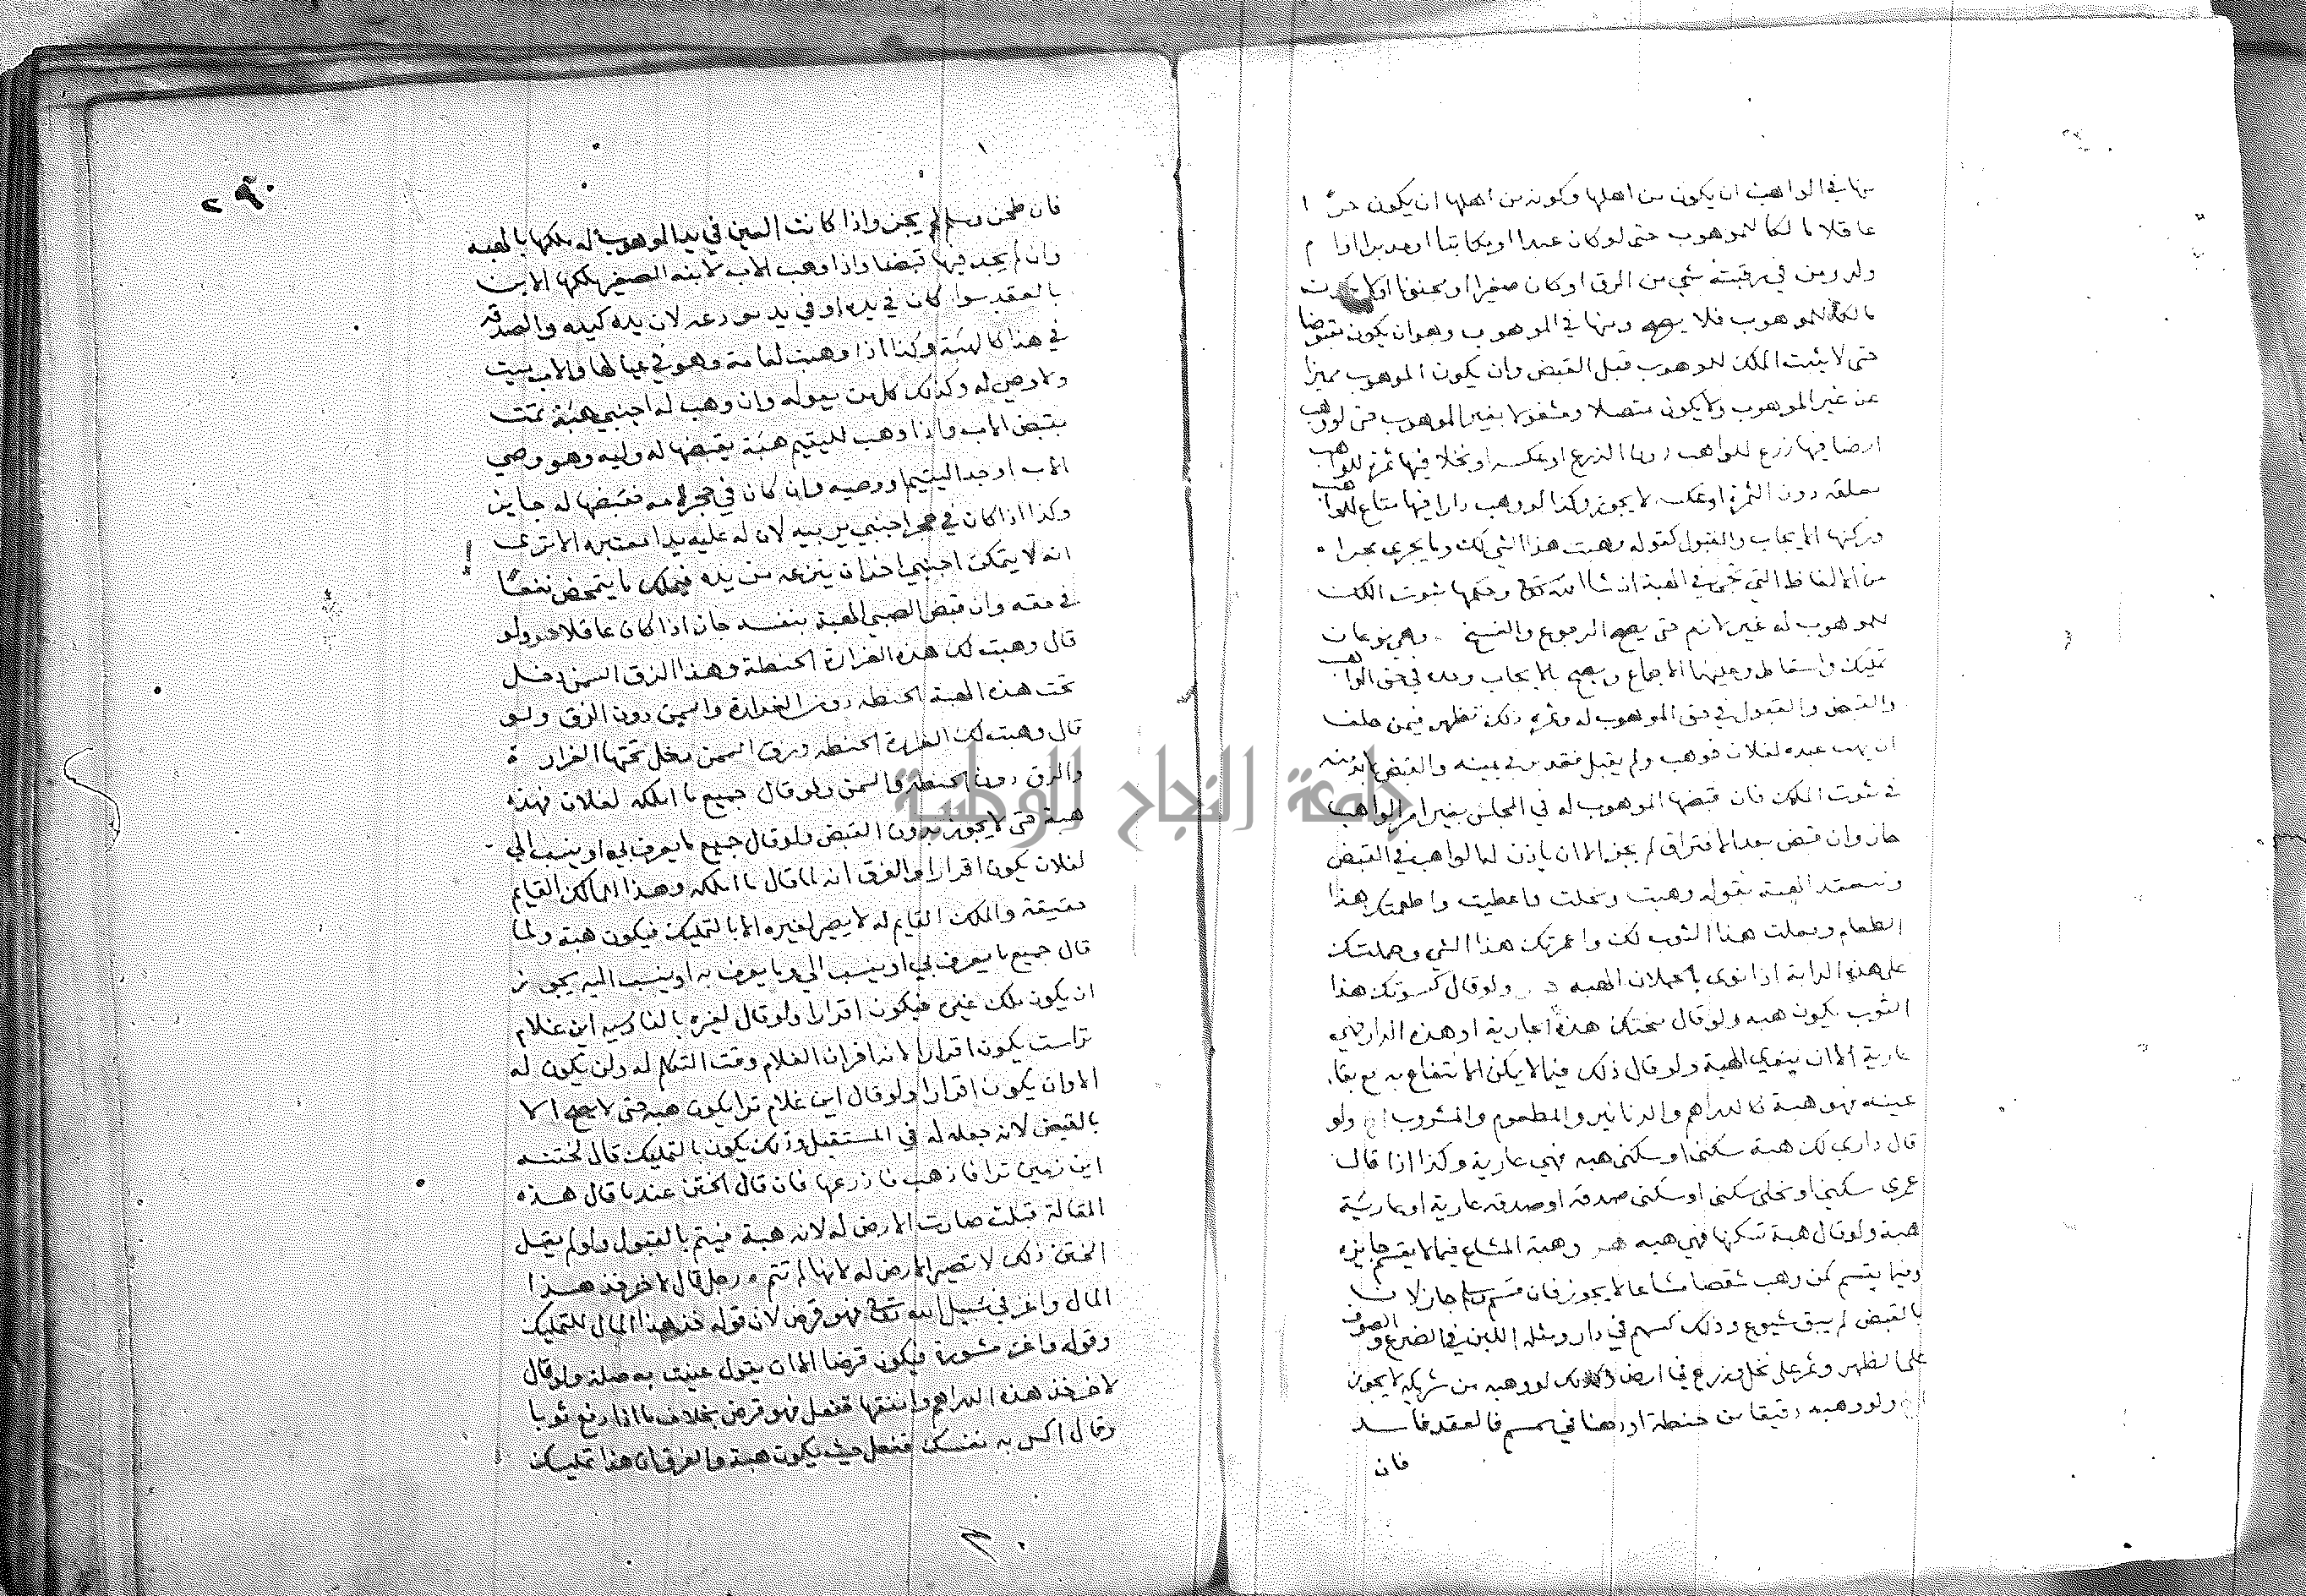 منها في الواهب ان يكون من اهلها وكونه من اهلها ان يكون حرا
عاقلا مالكا للموهوب حتى لو كان عبدا او مكاتبا او مدبرا او ام
ولد او من في رقبته شي من الرق او كان صغيرا او مجنونا او لا يكون
مالكا للموهوب فلا يصح ومنها في الموهوب وهو ان يكون مقبوضا
حتى لا يثبت الملك للموهوب قبل القبض وان يكون الموهوب مميزا
عن غير الموهوب ولا يكون متصلا ومشغولا بغير الموهوب حتى لو وهب
ارضا فيها زرع للواهب دون الزرع او عكسه او نخلا فيها ثمرة للواهب
معلقة دون الثمرة او عكسه لا يجوز وكذا لو وهب دارا فيها متاع للواهب
وركنها الايجاب والقبول كقوله وهبت هذا الشي لك وما يجري مجراه
من الالفاظ التي تجي في الهبة ان شا الله تعالى وحكمها ثبوت الملك
للموهوب له غير لازم حتى يصح الرجوع والفسخ وهي نوعان
تمليك واسقاط وعليهما الاجماع ويصح بالايجاب وحده في حق الواهب
والقبض والقبول في حق الموهوب له وثمرة ذلك تظهر فيمن حلف
ان يهب عبده لفلان فوهب ولم يقبل فقد بر في يمينه والقبض لا بد منه
في ثبوت الملك فان قبضها الموهوب له في المجلس بغير امر الواهب
جاز وان قبض بعد الافتراق لم يجز الا ان ياذن له الواهب في القبض
وتنعقد الهبة بقوله وهبت ونحلت واعطيت واطعمتك هذا
الطعام وجعلت هذا الثوب لك واعمرتك هذا الشي وحملتك
على هذه الدابة اذا نوى بالحملان الهبة ولو قال كسوتك هذا
الثوب يكون هبة ولو قال منحتك هذه الجارية او هذه الدار فهي
عارية الا ان ينوي الهبة ولو قال ذلك فيما لا يمكن الانتفاع به مع بقا
عينه فهو هبة كالدراهم والدنانير والمطعوم والمشروب ولو
قال داري لك هبة سكنى او سكنى هبة فهي عارية وكذا اذا قال
عمري سكنى او نحلى سكنى او سكنى صدقة او صدقة عارية او عارية
هبة ولو قال هبة تسكنها فهي هبة وهبة المشاع فيما لا يقسم جايزة
وفيما يقسم كمن وهب شقصا مشاعا لا يجوز فان قسم وسلم جاز لان
بالقبض لم يبق شيوع وذلك كسهم في دار ومثله اللبن في الضرع والصوف
على الظهر وثمر على نخل وزرع في ارض وكذلك لو وهبه من شريكه لا يجوز
ولو وهبه دقيقا من حنطة او دهنا في سمسم فالعقد فاسد
فان
٢٩٠
فان طحن وسلم لم يجز واذا كانت العين في يد الموهوب له ملكها بالهبة
وان لم يجدد فيها قبضا واذا وهب الاب لابنه الصغير ملكها الابن
بالعقد سوا كان في يده او في يد مودعه لان يده كيده والصدقة
في هذا كالهبة وكذا اذا وهبت له امه وهو في عيالها والاب ميت
ولا وصي له وكذلك كل من يعوله وان وهب له اجنبي هبة تمت
بقبض الاب واذا وهب لليتيم هبة يقبضها له وليه وهو وصي
الاب او جد اليتيم او وصيه وان كان في حجر امه فقبضها له جايز
وكذا اذا كان في حجر اجنبي يربيه لان له عليه يدا معتبرة الا ترى
انه لا يتمكن اجنبي اخر ان ينزعه من يده فيملك ما يتمحض نفعا
في حقه وان قبض الصبي الهبة بنفسه جاز اذا كان عاقلا ولو
قال وهبت لك هذه الغرارة الحنطة وهذا الزق السمن دخل
تحت هذه الهبة الحنطة دون الغرارة والسمن دون الزق ولو
قال وهبت لك الغرارة الحنطة وزق السمن دخل تحتها الغرارة
والزق دون الحنطة والسمن ولو قال جميع ما املكه لفلان فهذه
هبة حتى لا يجوز بدون القبض ولو قال جميع ما يعرف بي او ينسب الي
لفلان يكون اقرارا والفرق انه لما قال ما املكه وهذا المالك القايم
حقيقة والملك القايم له لا يصير لغيره الا بالتمليك فيكون هبة ولما
قال جميع ما يعرف بي او ينسب الي وما يعرف به او ينسب اليه يجوز
ان يكون ملك غيره فيكون اقرارا ولو قال لغيره بالفارسية اين غلام
تراست يكون اقرارا لانه اقر ان الغلام وقت التكلم له ولن يكون له
الا وان يكون اقرارا ولو قال اين غلام ترا يكون هبة حتى لا يصح الا
بالقبض لانه جعله له في المستقبل وذلك يكون بالتمليك قال لختنه
اين زمين ترا فاذهب فازرعها فان قال الختن عند ما قال هذه
المقالة قبلت صارت الارض له لانه هبة فيتم بالقبول ولو لم يقبل
الختن ذلك لا تصير الارض له لانها لم تتم رجل قال لاخر خذ هذا
المال واغز في سبيل الله تعالى فهو قرض لان قوله خذ هذا المال للتمليك
وقوله واغز مشورة فيكون قرضا الا ان يقول عنيت به صلة ولو قال
لاخر خذ هذه الدراهم وانفقها ففعل فهو قرض بخلاف ما اذا دفع ثوبا
وقال اكس به نفسك ففعل حيث يكون هبة والفرق ان هذا تمليك
جامعة النجاح الوطنية